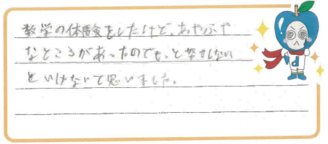 数学の体験をしたけど、あやふや
なところがあったのでもっと努力しない
といけないと思いました。